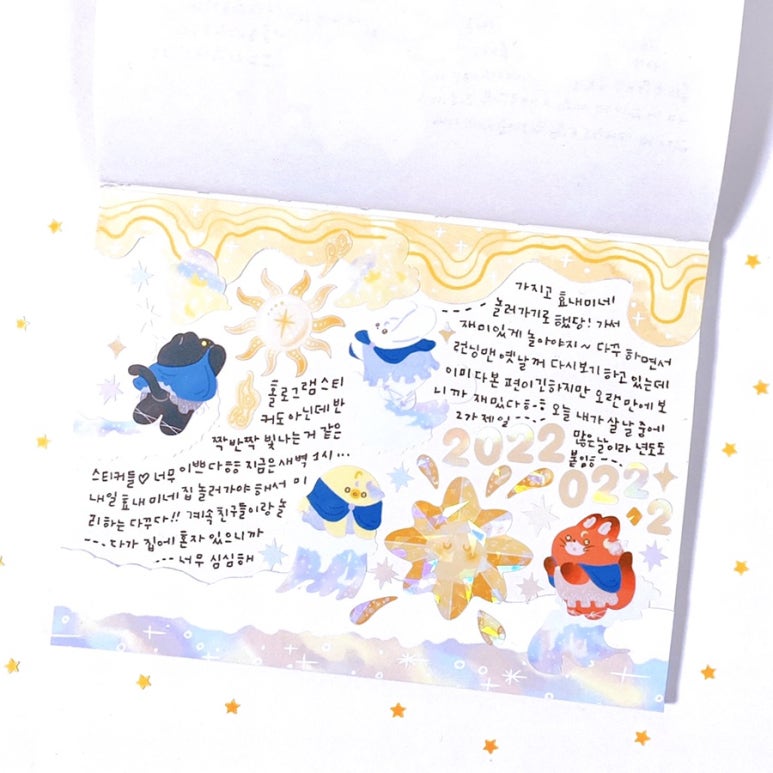 홀로그램 스티
커도 아닌데 반
짝반짝 빛나는거 같은
스티커들♡ 너무 이쁘다ㅎㅎ 지금은 새벽 1시...
내일 효내미네 집 놀러가야 해서 미
리하는 다꾸다!! 계속 친구들이랑 놀
---다가 집에 혼자 있으니까
---너무 심심해
가지고 효내미네
----놀러가기로 했당! 가서
재미있게 놀아야지~ 다꾸 하면서
런닝맨 옛날꺼 다시보기 하고 있는데
이미 다본 편이긴하지만 오랜만에 보
니까 재밌다ㅎㅎ 오늘 내가 살 날 중에
2가 제일----
많은날이라 년도도
붙임ㅎ---
2022
022
^2